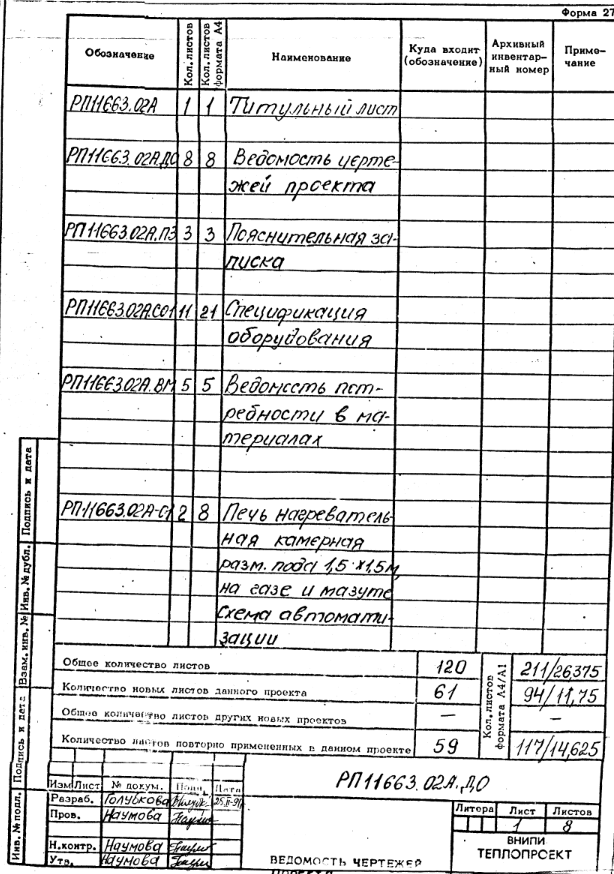 Форма 27
Обозначение Кол. листов Кол. листов формата А4 Наименование Куда входит (обозначение) Архивный инвентарный номер Примечание
РП11663.02А 1 1 Титульный лист
РП11663.02А.ДО 8 8 Ведомость черте-
жей проекта
РП11663.02А.ПЗ 3 3 Пояснительная за-
писка
РП11663.02А.СО1 11 21 Спецификация
оборудования
РП11663.02А.ВМ 5 5 Ведомость пот-
ребности в ма-
териалах
РП11663.02А-С1 2 8 Печь нагреватель-
ная камерная
разм. пода 1,5×1,5м,
на газе и мазуте
Схема автомати-
зации
Общее количество листов 120 Кол. листов формата А4/А1 211/26,375
Количество новых листов данного проекта 61 94/11,75
Общее количество листов других новых проектов — —
Количество листов повторно примененных в данном проекте 59 117/14,625
РП11663.02А.ДО
Изм Лист № докум. Подп. Дата
Разраб. Голубкова
Пров. Наумова
Н.контр. Наумова
Утв. Наумова
ВЕДОМОСТЬ ЧЕРТЕЖЕЙ
ПРОЕКТА
Литера Лист Листов
1 8
ВНИПИ
ТЕПЛОПРОЕКТ
Инв. № подл. Подпись и дата Взам. инв. № Инв. № дубл. Подпись и дата